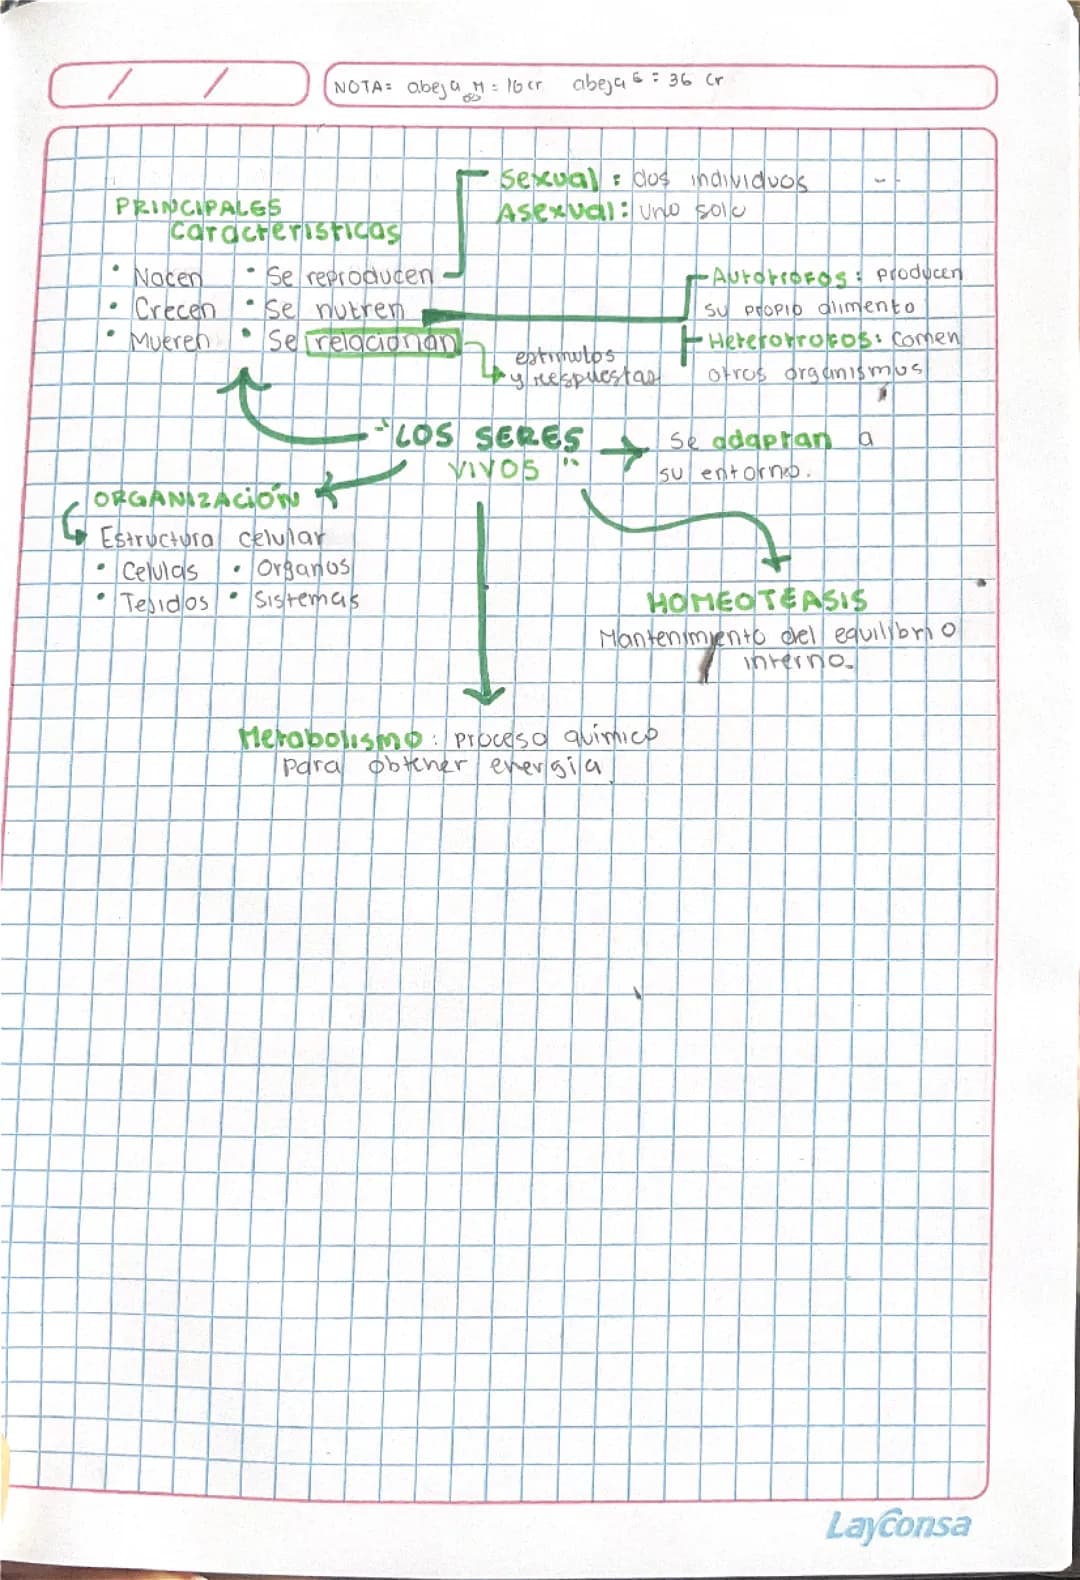 NOTA= abeja M = 16 cr abeja = 36 cr
Sexual : dos individuos
Asexual: uno solo
PRINCIPALES
caracteristicas
• Nacen • Se reproducen
• Crecen • Se nutren
• Mueren • Se relacionan
Autotrofos: producen
su propio alimento
Heterotrofos: comen
otros organismos
estimulos
y respuestas
"LOS SERES
VIVOS"
Se adaptan a
su entorno.
ORGANIZACIÓN
Estructura celular
• Celulas • Organos
• Tejidos • Sistemas
HOMEOTEASIS
Mantenimiento del equilibrio
interno.
Metabolismo: proceso químico
para obtener energia
Layconsa